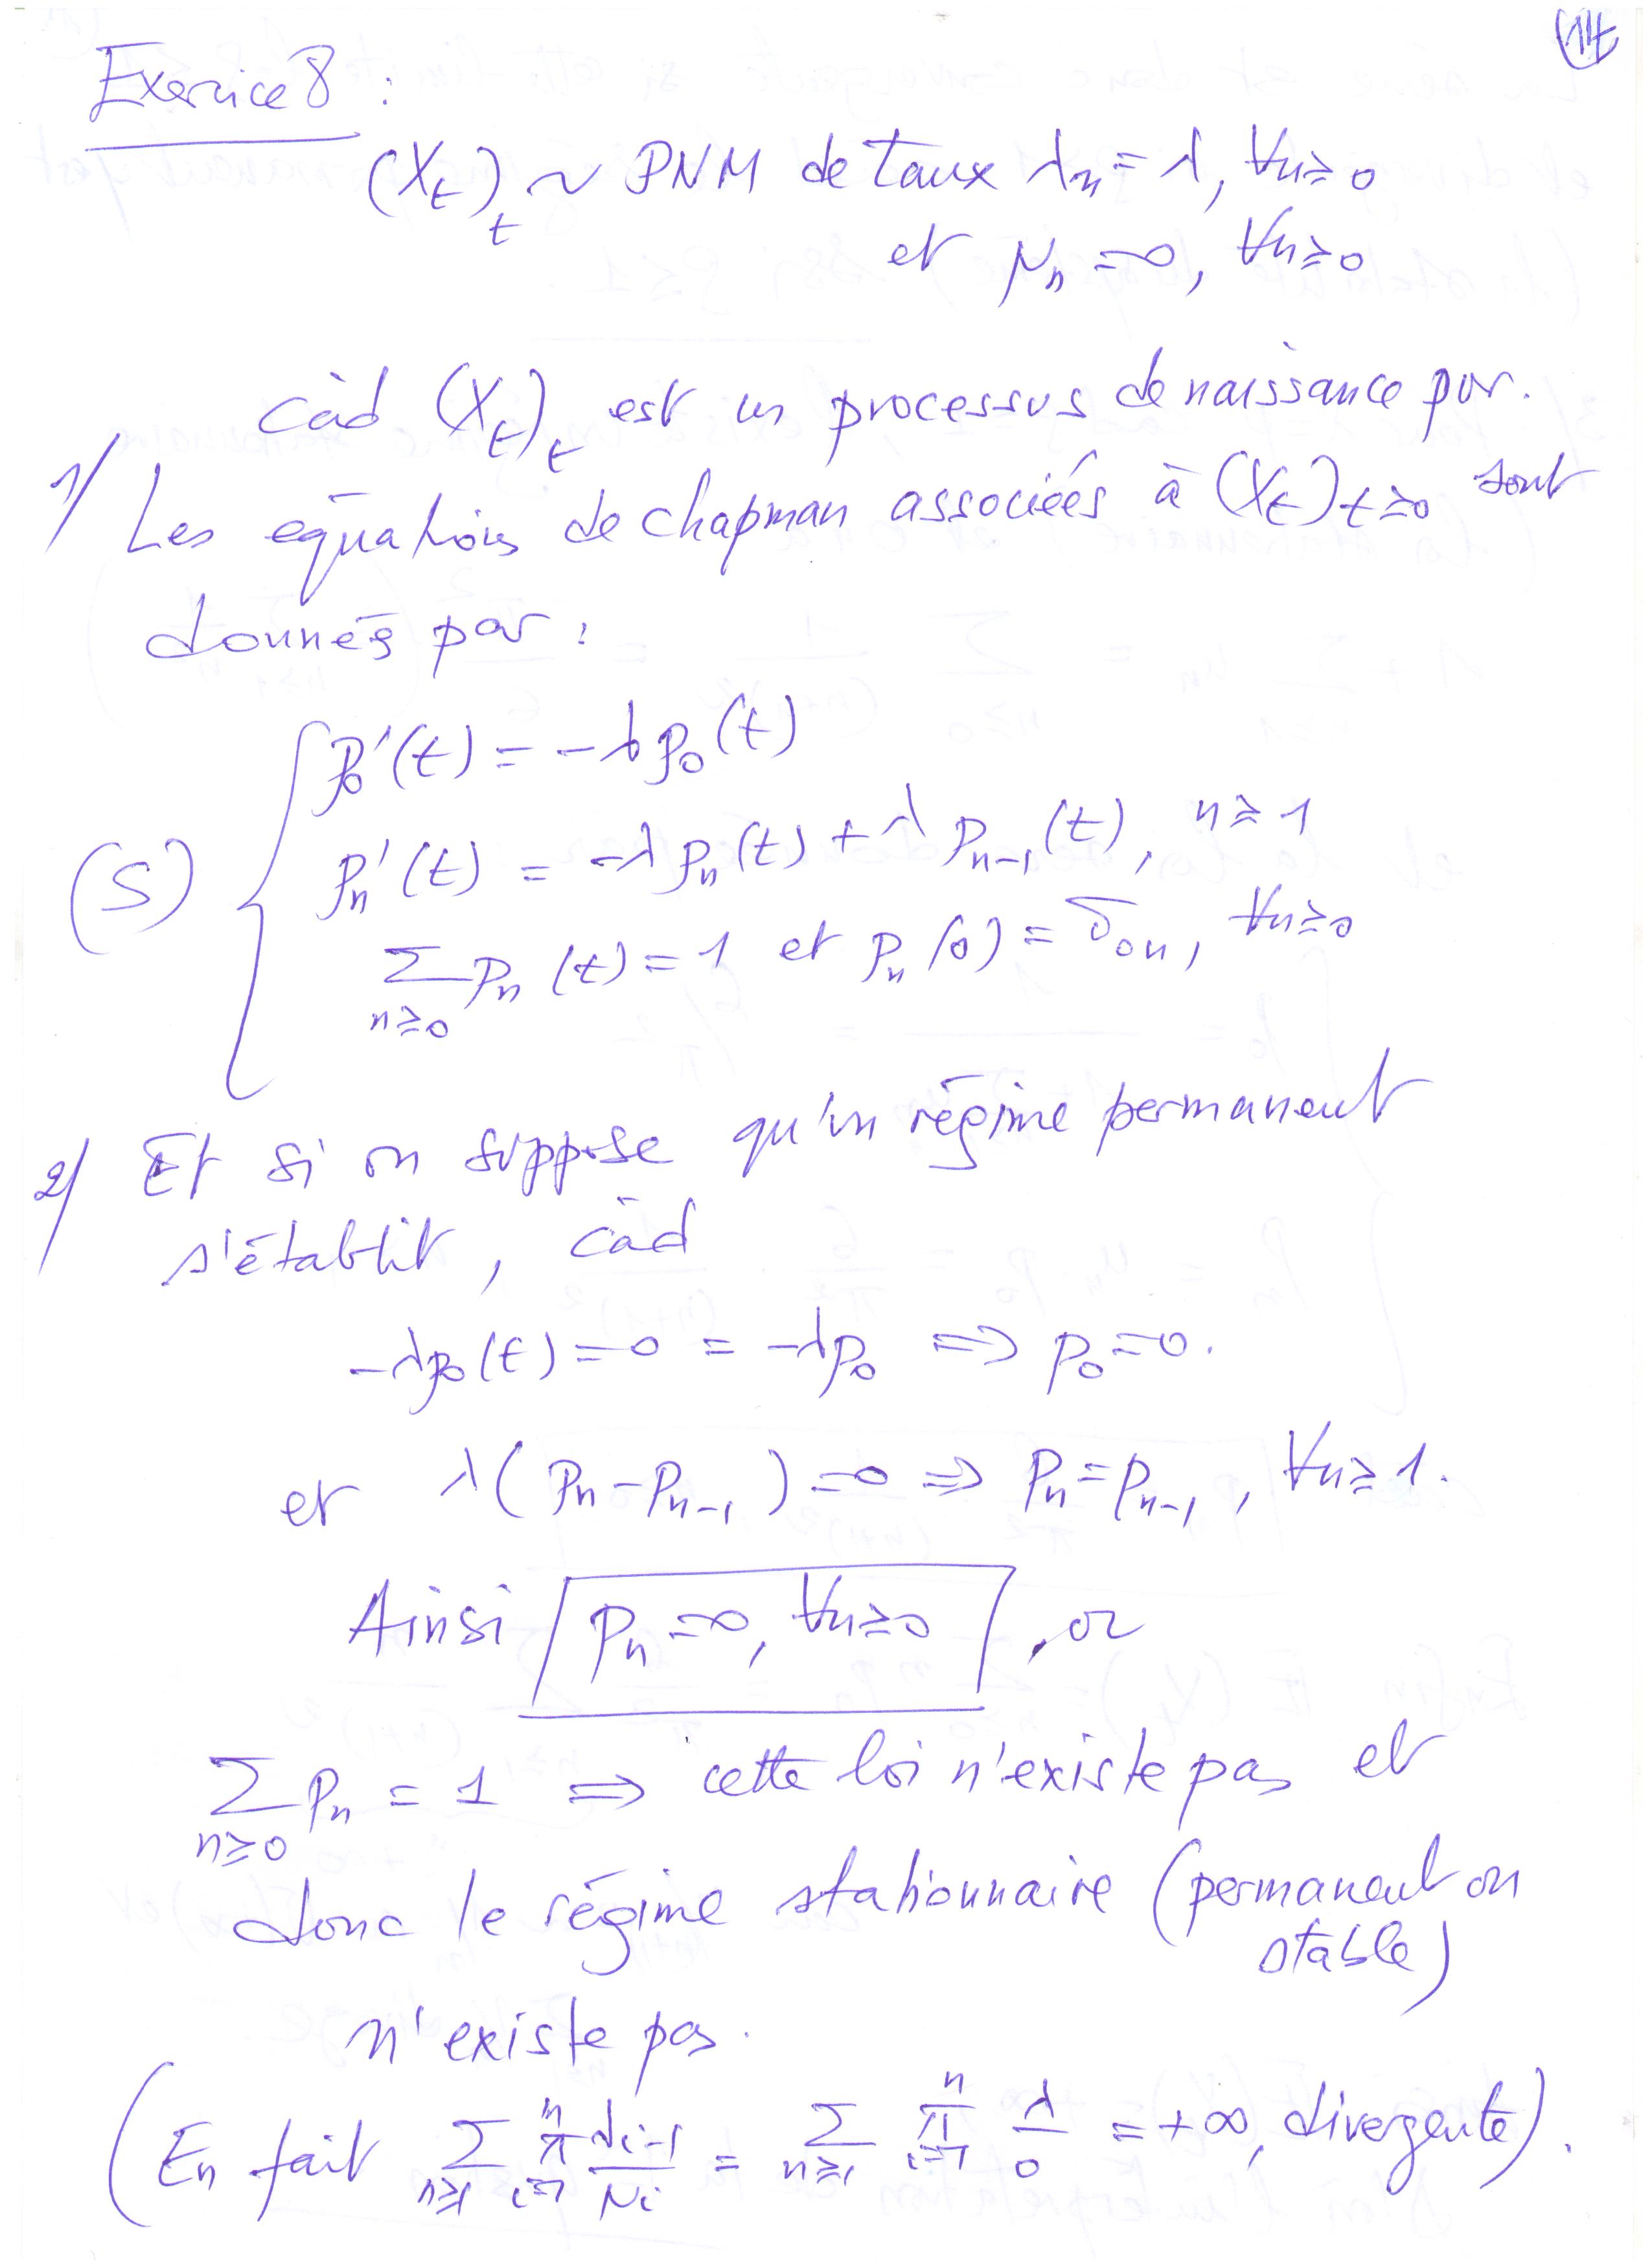 Exercice 8 :
(X_t)_t ~ PNM de taux λ_n = λ, ∀n≥0
et μ_n = 0, ∀n≥0
càd (X_t)_t est un processus de naissance pur.
1/ Les équations de chapman associées à (X_t)_{t≥0} sont
donnés par :
p_0'(t) = -λ p_0(t)
(S) { p_n'(t) = -λ p_n(t) + λ p_{n-1}(t), n ≥ 1
∑_{n≥0} p_n(t) = 1 et p_n(0) = δ_{0n}, ∀n≥0
2/ Et si on suppose qu'un régime permanent
s'établit, càd
-λp_0(t) = 0 = -λp_0 ⇒ p_0 = 0.
et λ(p_n - p_{n-1}) = 0 ⇒ p_n = p_{n-1}, ∀n≥1.
Ainsi p_n = 0, ∀n≥0, or
∑_{n≥0} p_n = 1 ⇒ cette loi n'existe pas et
donc le régime stationnaire (permanent ou
stable)
n'existe pas.
(En fait ∑_{n≥1} π_{i=1}^{n} λ_{i-1}/μ_i = ∑_{n≥1} π_{i=1}^{n} λ/0 = +∞, divergente).